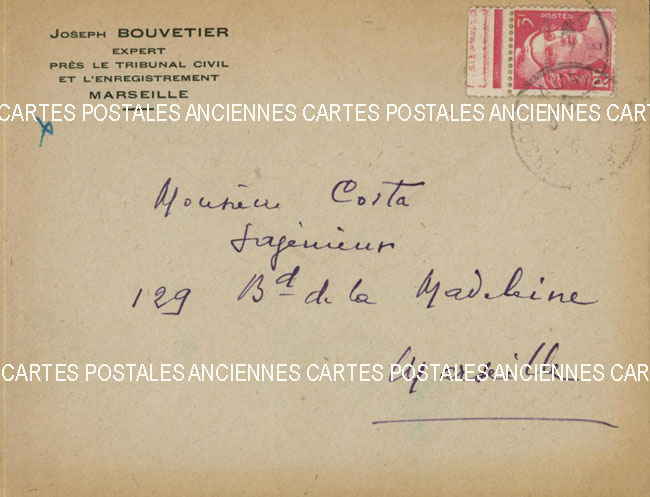 Joseph BOUVETIER
EXPERT
PRÈS LE TRIBUNAL CIVIL
ET L'ENREGISTREMENT
MARSEILLE
3F
POSTES
CARTES POSTALES ANCIENNES CARTES POSTALES ANCIENNES CAR
Monsieur Costa
Ingénieur
129 Bd de la Madeleine
CARTES POSTALES ANCIENNES CARTES POSTALES ANCIENNES CAR
Marseille